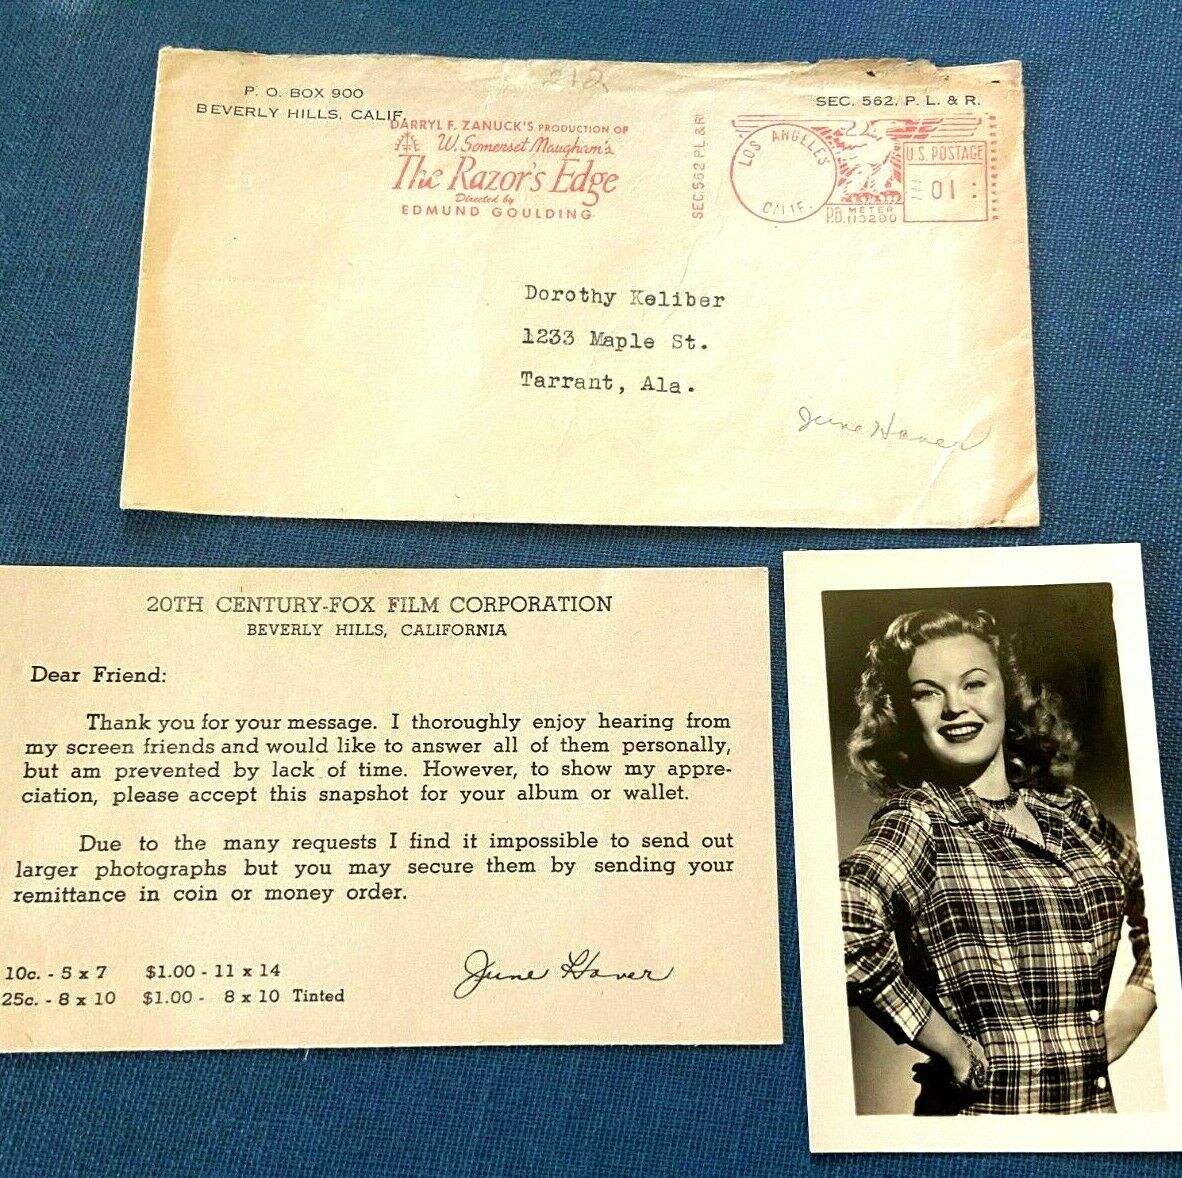 212
P. O. BOX 900
BEVERLY HILLS, CALIF.
SEC. 562, P. L. & R.
DARRYL F. ZANUCK'S PRODUCTION OF
W. Somerset Maugham's
The Razor's Edge
Directed by
EDMUND GOULDING
SEC. 562 P.L & R.
LOS ANGELES
CALIF.
U.S. POSTAGE
01
P.B. METER
113280
Dorothy Keliber
1233 Maple St.
Tarrant, Ala.
June Haver
20TH CENTURY-FOX FILM CORPORATION
BEVERLY HILLS, CALIFORNIA
Dear Friend:
Thank you for your message. I thoroughly enjoy hearing from
my screen friends and would like to answer all of them personally,
but am prevented by lack of time. However, to show my appre-
ciation, please accept this snapshot for your album or wallet.
Due to the many requests I find it impossible to send out
larger photographs but you may secure them by sending your
remittance in coin or money order.
10c. - 5 x 7 $1.00 - 11 x 14
25c. - 8 x 10 $1.00 - 8 x 10 Tinted
June Haver